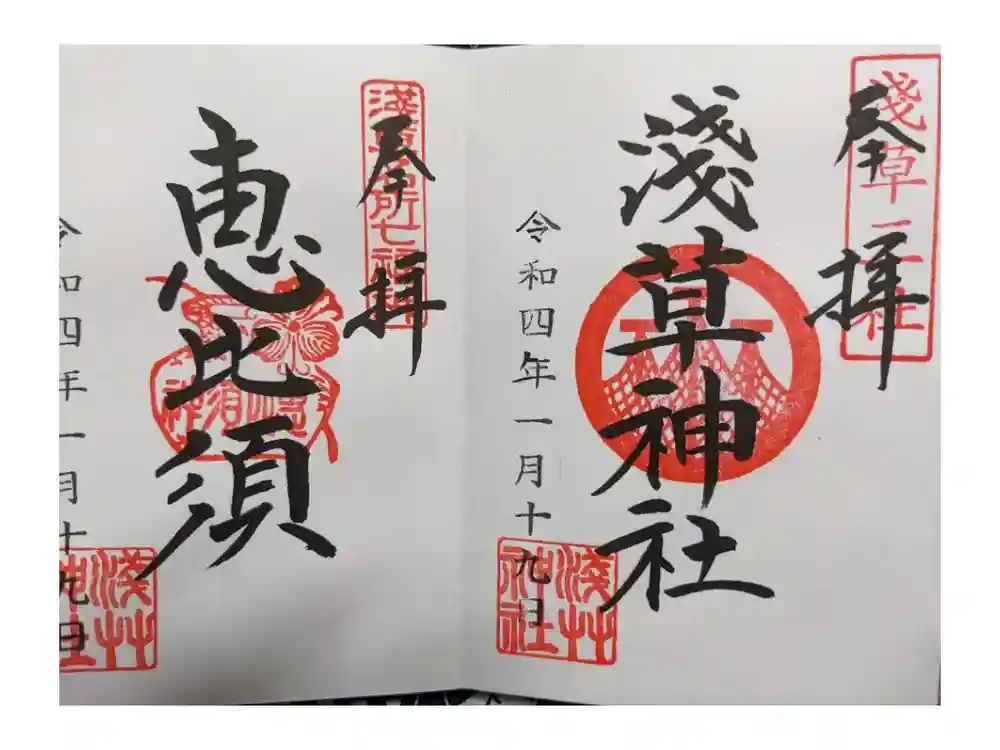 奉拝
淺草三社
淺草神社
令和四年一月十九日
淺草神社
奉拝
淺草名所七福神
恵比須
令和四年一月十九日
淺草神社